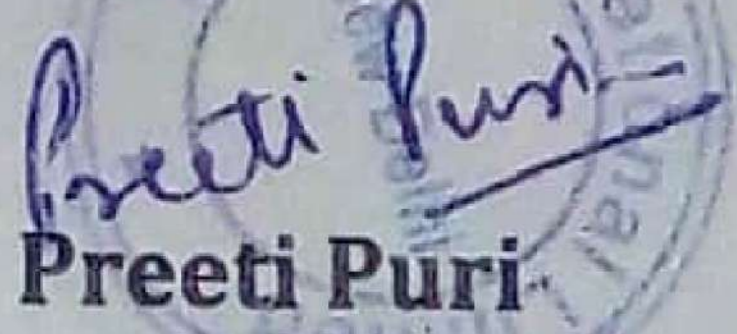 Preeti Puri
Preeti Puri